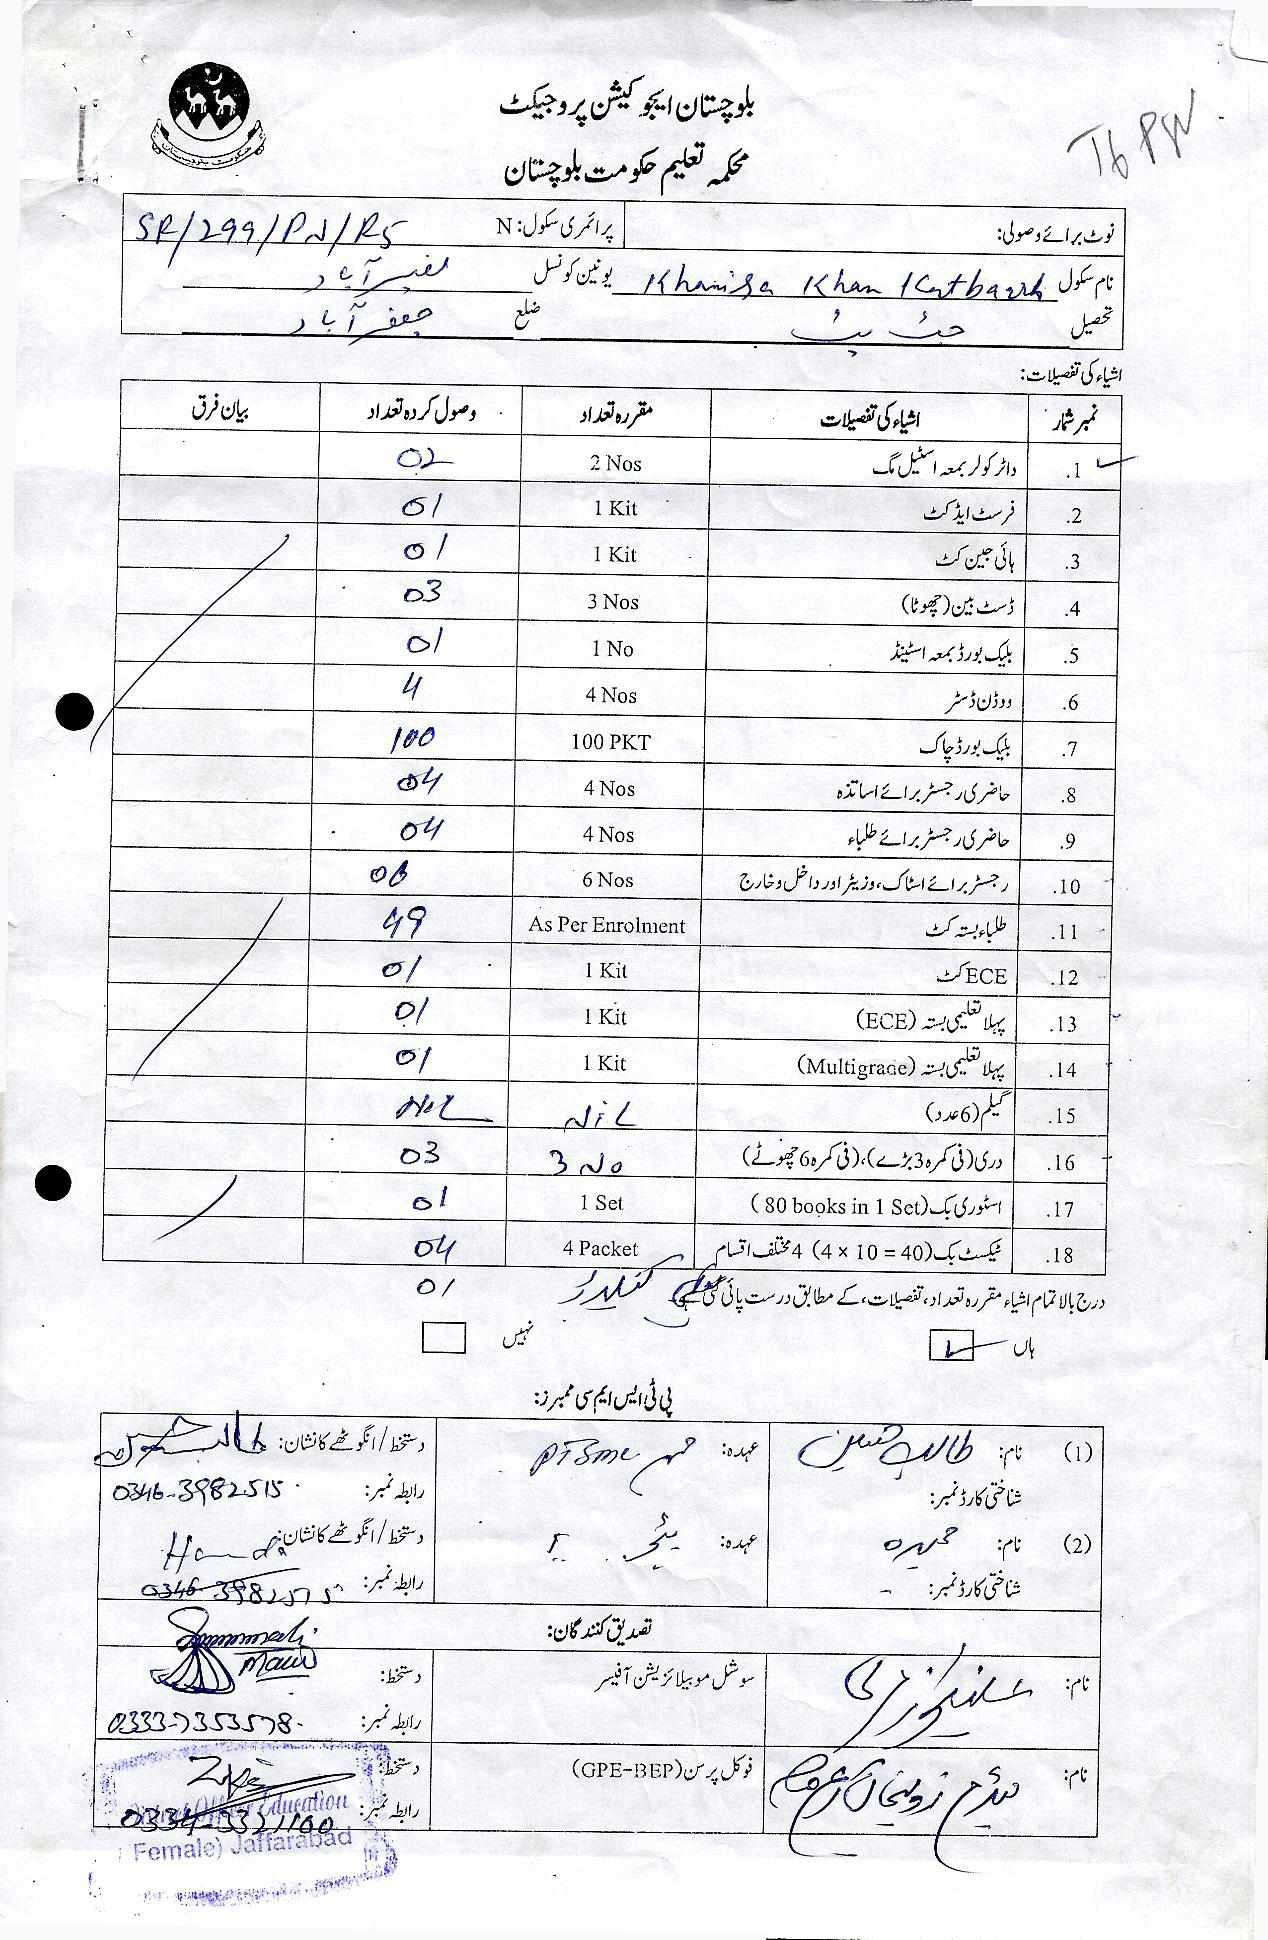 بلوچستان ایجوکیشن پروجیکٹ
محکمہ تعلیم حکومت بلوچستان
حکومت بلوچستان
نوٹ برائے وصولی: پرائمری سکول: N SR/299/PN/R5
نام سکول Khanisa Khan Katbarrh یونین کونسل
تحصیل ضلع جعفر آباد
اشیاء کی تفصیلات:
نمبر شمار اشیاء کی تفصیلات مقررہ تعداد وصول کردہ تعداد بیان فرق
1. واٹر کولر بمعہ اسٹیل مگ 2 Nos 02
2. فرسٹ ایڈ کٹ 1 Kit 01
3. ہائی جین کٹ 1 Kit 01
4. ڈسٹ بین (چھوٹا) 3 Nos 03
5. بلیک بورڈ بمعہ اسٹینڈ 1 No 01
6. ووڈن ڈسٹر 4 Nos 4
7. بلیک بورڈ چاک 100 PKT 100
8. حاضری رجسٹر برائے اساتذہ 4 Nos 04
9. حاضری رجسٹر برائے طلباء 4 Nos 04
10. رجسٹر برائے اسٹاک، وزیٹر اور داخل و خارج 6 Nos 06
11. طلباء بستہ کٹ As Per Enrolment 49
12. ECE کٹ 1 Kit 01
13. پہلا تعلیمی بستہ (ECE) 1 Kit 01
14. پہلا تعلیمی بستہ (Multigrade) 1 Kit 01
15. گیلم (6 عدد) NiL NiL
16. دری (فی کمرہ 3 بڑے)، (فی کمرہ 6 چھوٹے) 3 No 03
17. اسٹوری بک (80 books in 1 Set) 1 Set 01
18. ٹیکسٹ بک (4 × 10 = 40) 4 مختلف اقسام 4 Packet 04
درج بالا تمام اشیاء مقررہ تعداد، تفصیلات، کے مطابق درست پائی گئی 01
ہاں نہیں
پی ٹی ایس ایم سی ممبرز:
(1) نام: طالب حسین عہدہ: PTSMC دستخط/انگوٹھے کا نشان:
شناختی کارڈ نمبر: رابطہ نمبر: 0346-3982515
(2) نام: حمیدہ عہدہ: ٹیچر دستخط/انگوٹھے کا نشان:
شناختی کارڈ نمبر: رابطہ نمبر: 0346-3982515
تصدیق کنندگان:
نام: سوشل موبیلائزیشن آفیسر دستخط:
رابطہ نمبر: 0333-7353578
نام: فوکل پرسن (GPE-BEP) دستخط:
رابطہ نمبر: 0334-3321100
Education
Female) Jaffarabad